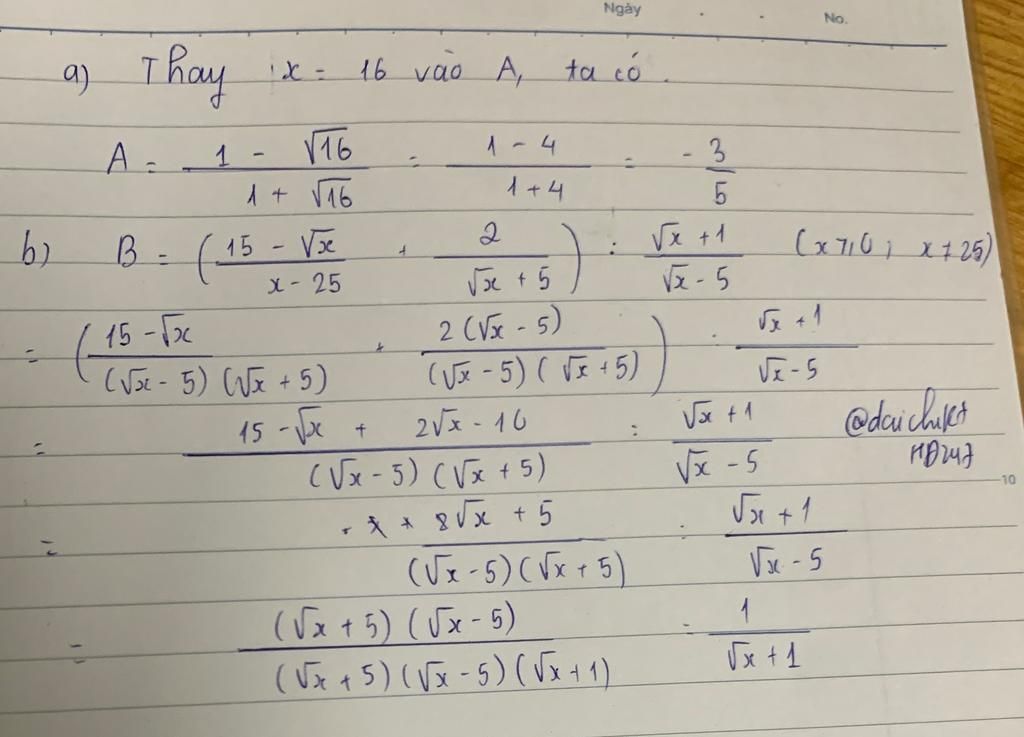 Ngày . . No.
a) Thay x = 16 vào A, ta có.
A = (1 - √16)/(1 + √16) = (1 - 4)/(1 + 4) = -3/5
b) B = ((15 - √x)/(x - 25) + 2/(√x + 5)) : (√x + 1)/(√x - 5) (x ≥ 0; x ≠ 25)
= ((15 - √x)/((√x - 5)(√x + 5)) + (2(√x - 5))/((√x - 5)(√x + 5))) : (√x + 1)/(√x - 5)
= (15 - √x + 2√x - 10)/((√x - 5)(√x + 5)) : (√x + 1)/(√x - 5)
@daichikt
= (√x + 5)/((√x - 5)(√x + 5)) : (√x + 1)/(√x - 5)
10
= ((√x + 5)(√x - 5))/((√x + 5)(√x - 5)(√x + 1)) = 1/(√x + 1)